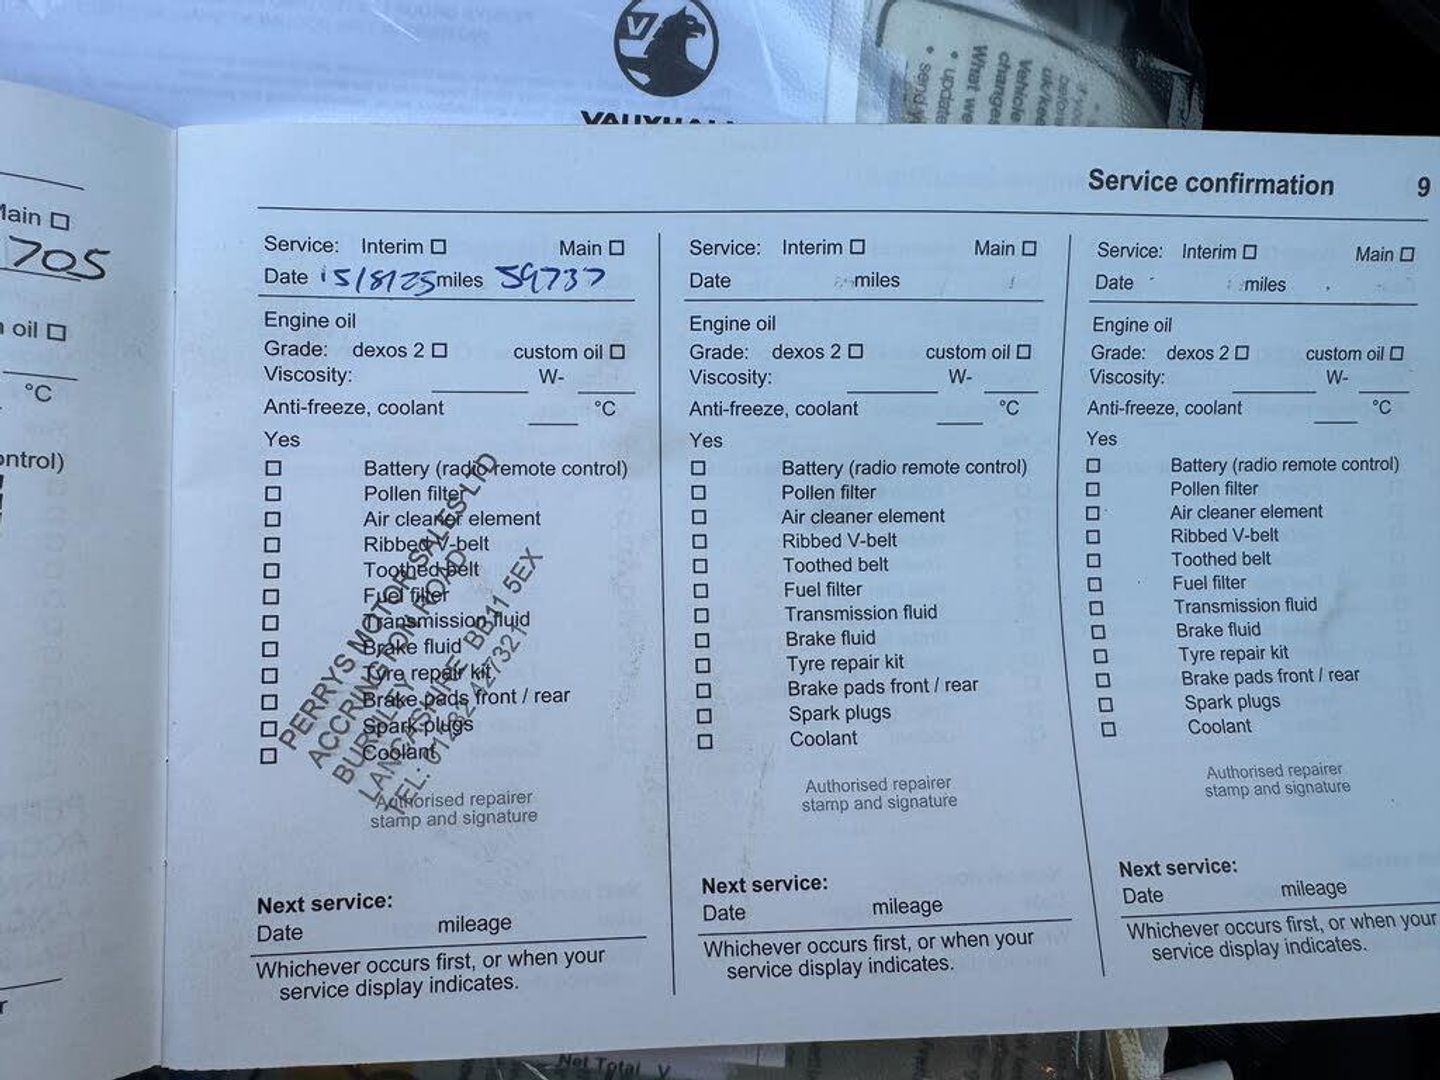 VAUXHALL
send
update
What we
changed
Vehicle
Main
705
oil
°C
Service confirmation 9
Service: Interim Main
Date 15/8/25 miles 59737
Engine oil
Grade: dexos 2 custom oil
Viscosity: W-
Anti-freeze, coolant °C
Yes
Battery (radio remote control)
Pollen filter
Air cleaner element
Ribbed V-belt
Toothed belt
Fuel filter
Transmission fluid
Brake fluid
Tyre repair kit
Brake pads front / rear
Spark plugs
Coolant
PERRYS MOTOR SALES LTD
ACCRINGTON ROAD
BURNLEY
LANCASHIRE, BB11 5EX
TEL: 01282 427321
Authorised repairer
stamp and signature
Next service:
Date mileage
Whichever occurs first, or when your
service display indicates.
Service: Interim Main
Date miles
Engine oil
Grade: dexos 2 custom oil
Viscosity: W-
Anti-freeze, coolant °C
Yes
Battery (radio remote control)
Pollen filter
Air cleaner element
Ribbed V-belt
Toothed belt
Fuel filter
Transmission fluid
Brake fluid
Tyre repair kit
Brake pads front / rear
Spark plugs
Coolant
Authorised repairer
stamp and signature
Next service:
Date mileage
Whichever occurs first, or when your
service display indicates.
Service: Interim Main
Date miles
Engine oil
Grade: dexos 2 custom oil
Viscosity: W-
Anti-freeze, coolant °C
Yes
Battery (radio remote control)
Pollen filter
Air cleaner element
Ribbed V-belt
Toothed belt
Fuel filter
Transmission fluid
Brake fluid
Tyre repair kit
Brake pads front / rear
Spark plugs
Coolant
Authorised repairer
stamp and signature
Next service:
Date mileage
Whichever occurs first, or when your
service display indicates.
Net Total